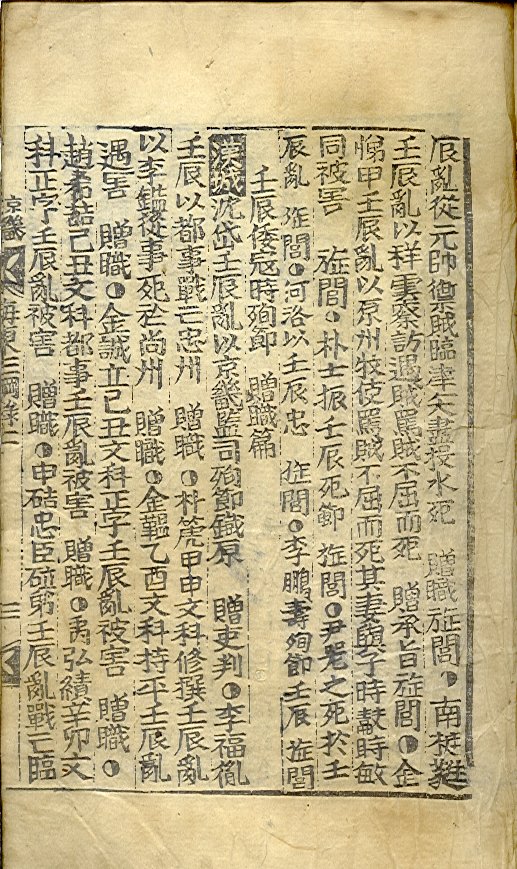 辰亂從元帥禦賊臨津矢盡投水死 贈職旌閭 南梃蕤
壬辰亂以祥雲察訪遇賊罵賊不屈而死 贈承旨旌閭 金
悌甲壬辰亂以原州牧使罵賊不屈而死其妻與子時獻時敏
同被害 旌閭 朴士振壬辰死節 旌閭 尹覺之死於壬
辰亂 旌閭 河洛以壬辰忠 旌閭 李鵬壽殉節壬辰 旌閭
壬辰倭寇時殉節 贈職篇
漢城 沈岱壬辰亂以京畿監司殉節鐵原 贈吏判 李福胤
壬辰以都事戰亡忠州 贈職 朴箎甲申文科修撰壬辰亂
以李鎰從事死於尙州 贈職 金韞乙酉文科持平壬辰亂
遇害 贈職 金誠立己丑文科正字壬辰亂被害 贈職
趙希喆己丑文科都事壬辰亂被害 贈職 禹弘績辛卯文
科正字壬辰亂被害 贈職 申硈忠臣砬弟壬辰亂戰亡臨
京畿 海東三綱錄二 三